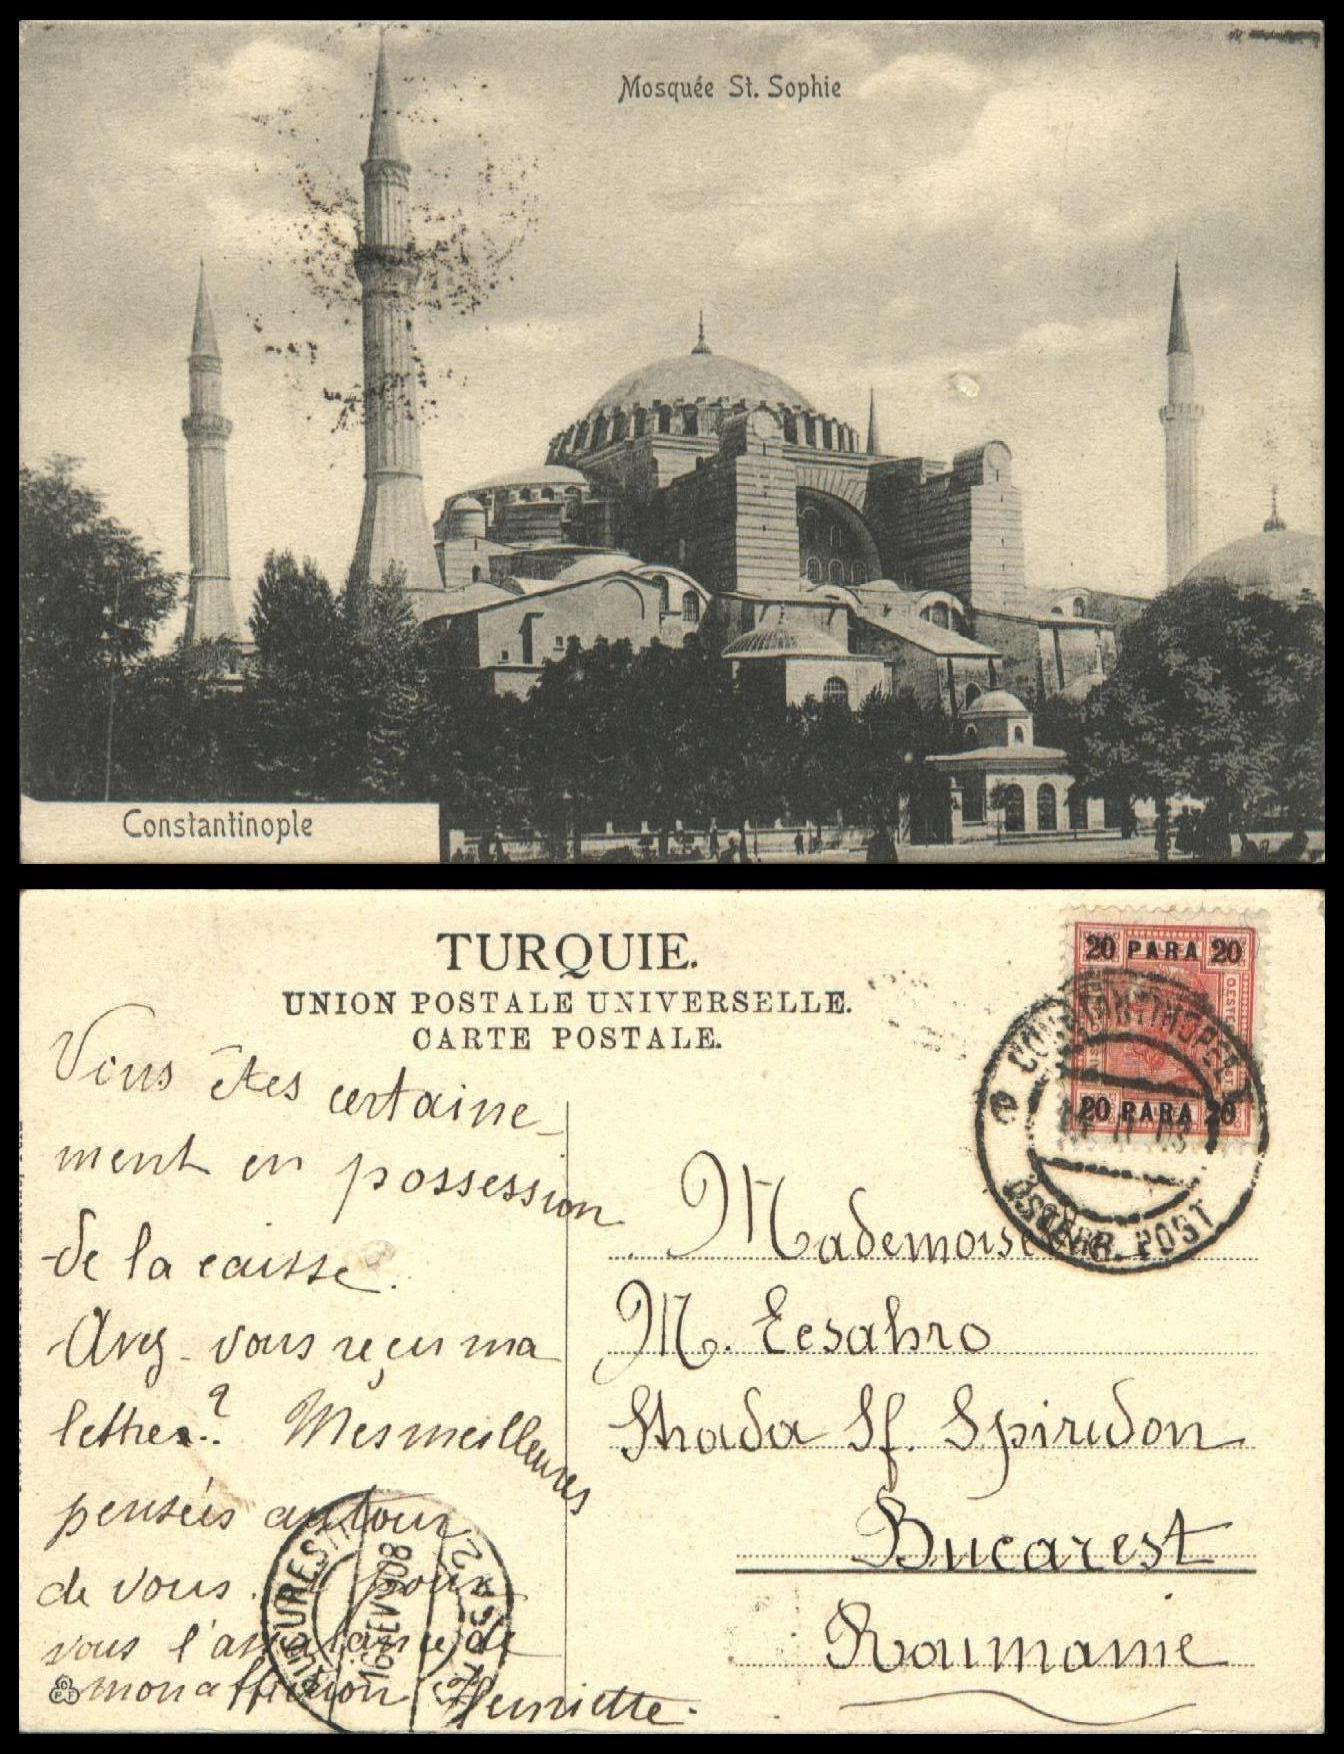 Mosquée St. Sophie
Constantinople
TURQUIE.
UNION POSTALE UNIVERSELLE.
CARTE POSTALE.
20 PARA 20
20 PARA 20
CONSTANTINOPEL
ÖSTERR. POST
Vous êtes certaine_
ment en possession
de la caisse.
Avez-vous reçu ma
lettre? Mes meilleures
pensées autour
de vous. pour
vous l'assurance de
mon affection Henriette.
BUCURESTI
16 FEV 908
Mademoise
M. Eesahro
Strada Sf. Spiridon
Bucarest
Roumanie